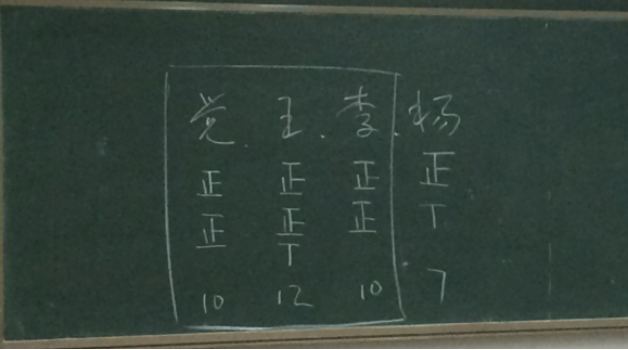 党.王.李.杨
正 正 正 正
正 正 正 丅
丅
10 12 10 7